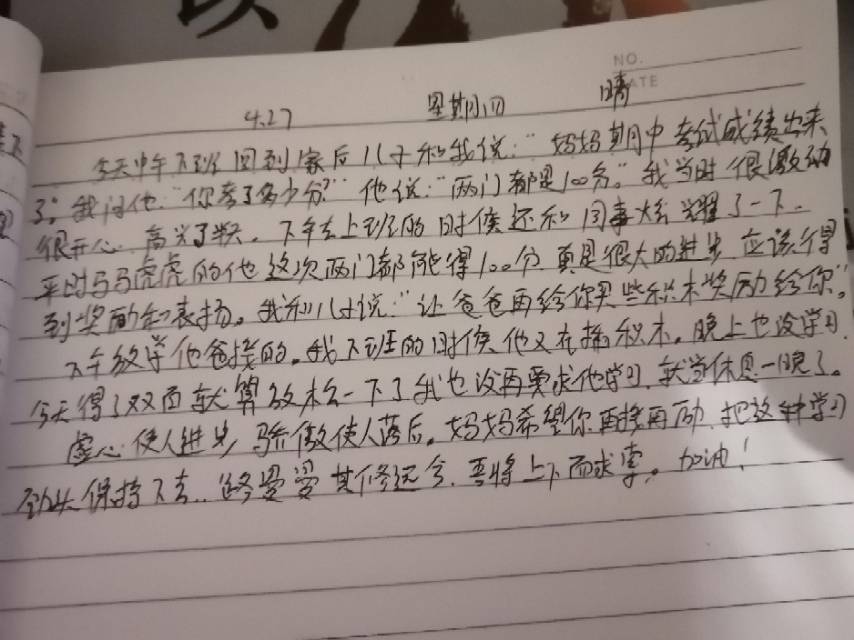 NO.
DATE
4.27 星期四 晴
今天中午下班回到家后儿子和我说:"妈妈期中考试成绩出来
了。我问他:"你考了多少分?"他说:"两门都是100分。"我当时很激动
很开心 高兴了半天。下午去上班的时候还和同事炫耀了一下。
平时马马虎虎的他这次两门都能得100分 真是很大的进步 应该得
到奖励和表扬。我和儿子说:"让爸爸再给你买些积木奖励给你。"
下午放学他爸接的。我下班的时候他又在搭积木。晚上也没学习
今天得了双百就算放松一下了我也没再要求他学习.就当休息一晚了。
虚心使人进步 骄傲使人落后。妈妈希望你再接再励 把这种学习
劲头保持下去..路曼曼其修远兮.吾将上下而求索。加油!